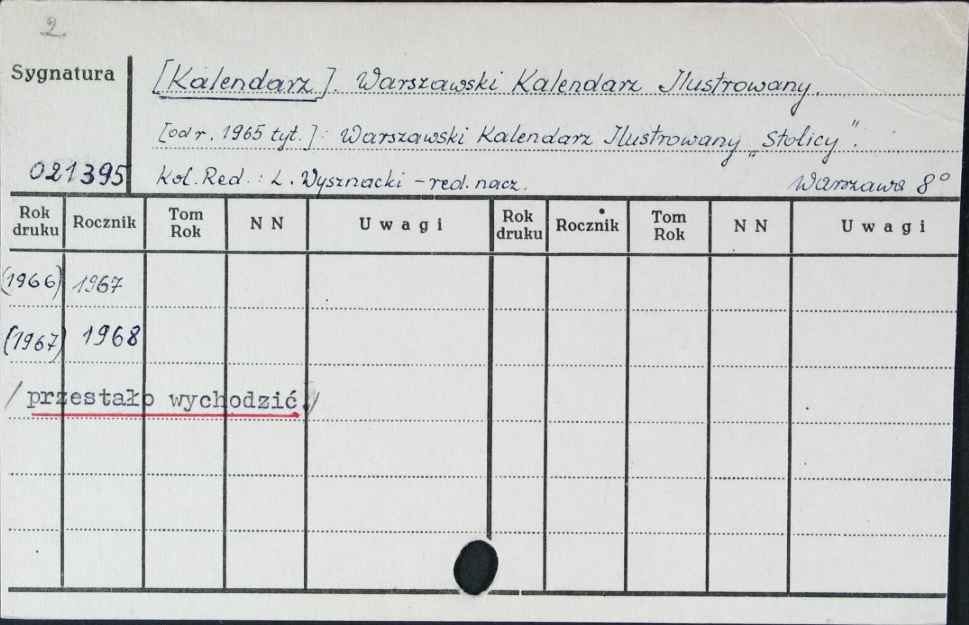 2
Sygnatura
[Kalendarz]. Warszawski Kalendarz Ilustrowany.
[od r. 1965 tyt.]: Warszawski Kalendarz Ilustrowany „Stolicy".
021395 Kol. Red.: L. Wysznacki - red. nacz. Warszawa 8°
Rok druku Rocznik Tom Rok N N Uwagi Rok druku Rocznik Tom Rok N N Uwagi
(1966) 1967
(1967) 1968
/przestało wychodzić./